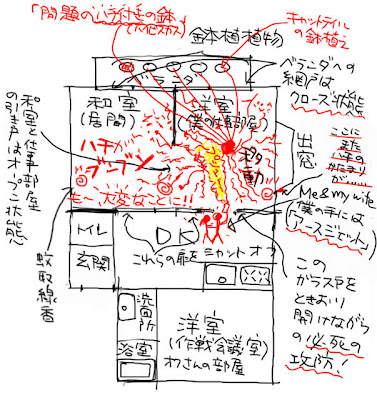 「問題のハラ付近の鉢
キャットテイル
の鉢植え
鉢植植物
ベランダ
ベランダへの
網戸は
クローズ状態
和室
(居間)
洋室
僕の仕事部屋
移動
出窓
ここに
また
ハチの
かたまり
が……
ハチが
ブンブン
も〜大変なことに!!
和室と仕事部屋
の引き戸はオープン状態
蚊取線香
Me & my wife
僕の手には
「アースジェット」
トイレ
玄関
DK
これらの扉をシャットオフ
この
ガラス戸を
ときおり
開けながら
の必死の
攻防!
洗面所
浴室
洋室
(作戦会議室)
オクさんの部屋